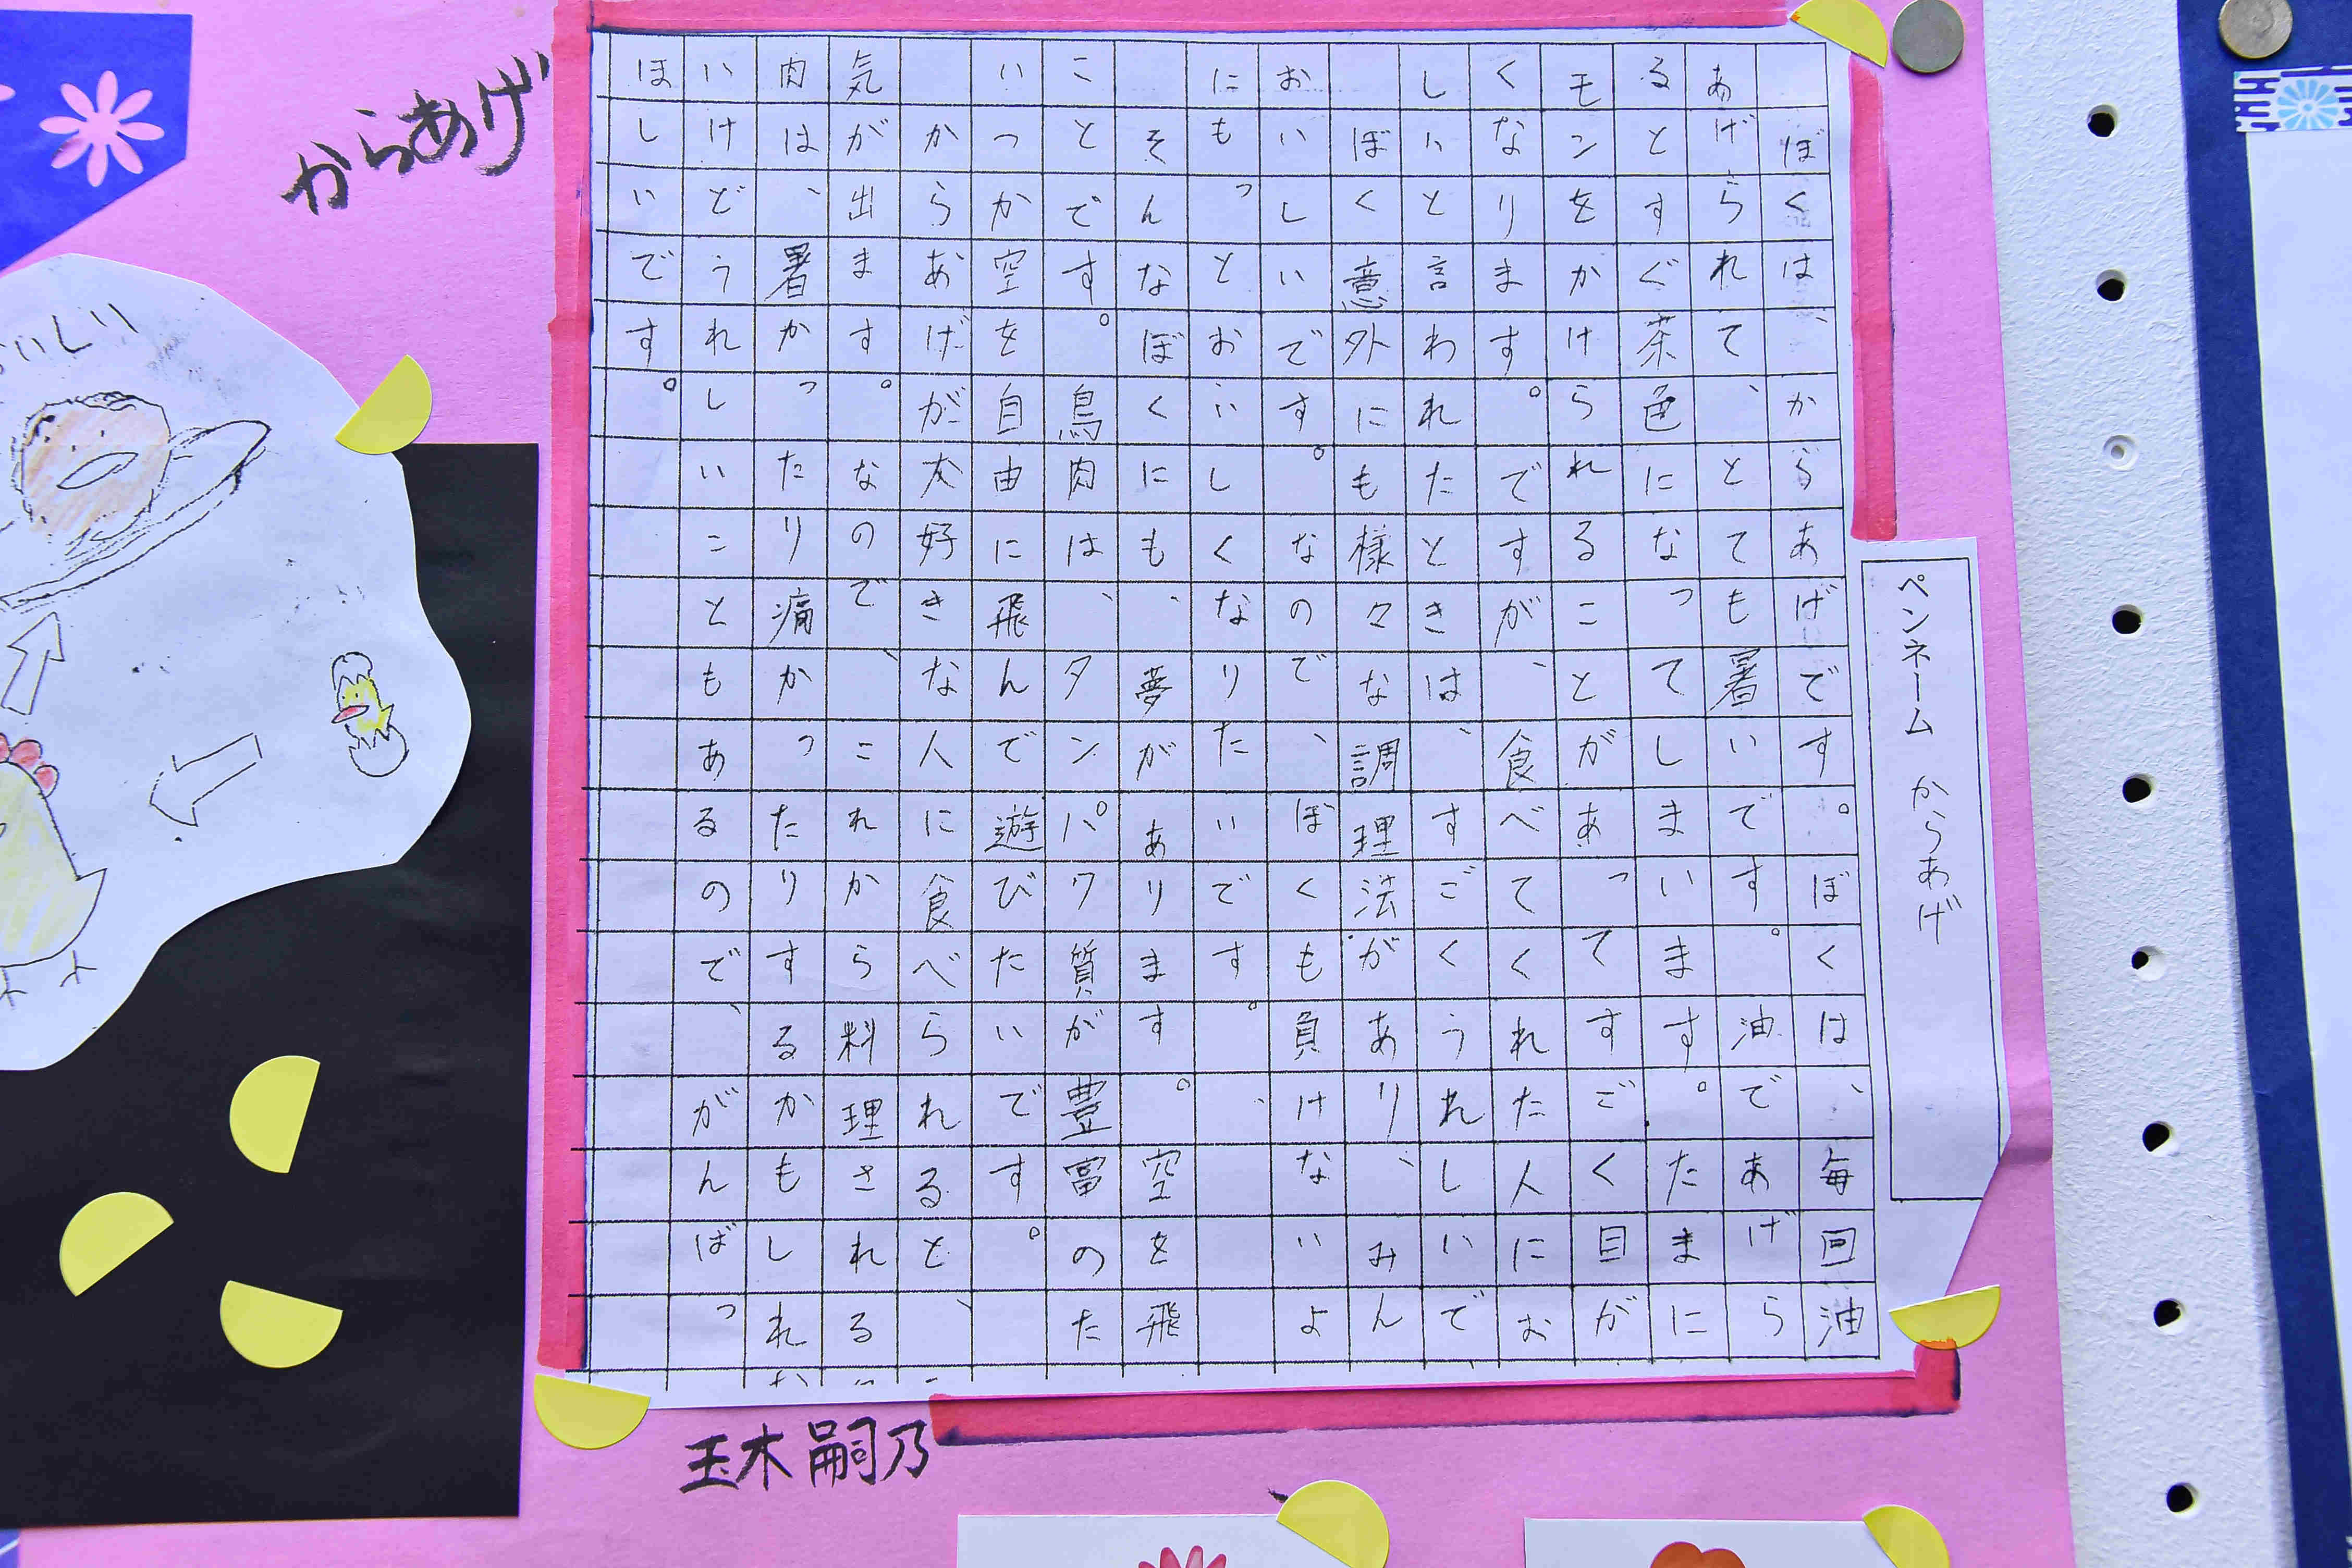 からあげ
おいしい
ペンネーム　からあげ
ぼくは、からあげです。ぼくは、毎回油
あげられて、とても暑いです。油であげら
るとすぐ茶色になってしまいます。たまに
モンをかけられることがあってすごく目が
くなります。ですが、食べてくれた人にお
しいと言われたときは、すごくうれしいで
ぼく意外にも様々な調理法があり、みん
おいしいです。なので、ぼくも負けないよ
にもっとおいしくなりたいです。
そんなぼくにも、夢があります。空を飛
ことです。鳥肉は、タンパク質が豊富のた
いつか空を自由に飛んで遊びたいです。
からあげが大好きな人に食べられると、
気が出ます。なので、これから料理される
肉は、暑かったり痛かったりするかもしれ
いけどうれしいこともあるので、がんばっ
ほしいです。
玉木嗣乃